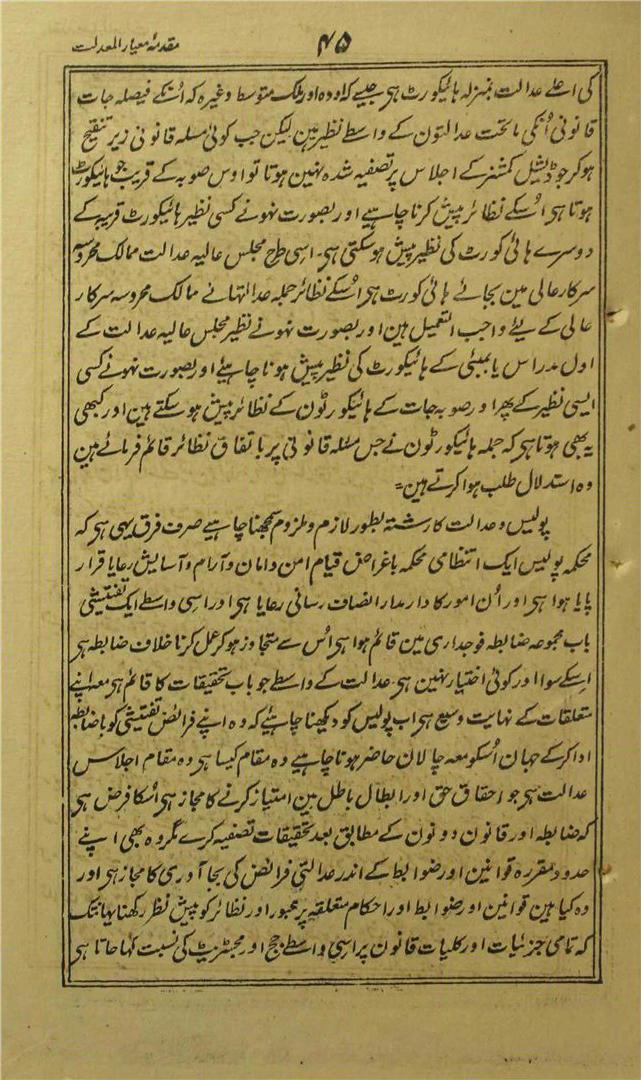 مقدمۂ معیار المعدلت
۴۵
کی اعلے عدالت بمنزلہ ہائیکورٹ ہی جیسے کہ اودہ اور ملک متوسط وغیرہ کہ اُنکے فیصلہ جات
قانونی اُنکی ماتحت عدالتون کے واسطے نظیر ہین لیکن جب کوئی مسلہ قانونی زیر تنقیح
ہوکر جوڈیشل کمشنر کے اجلاس پر تصفیہ شدہ نہین ہوتا تو اوس صوبہ کے قریب جو ہائیکورٹ
ہوتا ہی اُسکے نظائر پیش کرنا چاہیے اور بصورت نہونے کسی نظیر ہائیکورٹ قریبہ کے
دوسرے ہائی کورٹ کی نظیر پیش ہوسکتی ہی۔ اسی طرح مجلس عالیہ عدالت ممالک محروسہ
سرکار عالی مین بجائے ہائی کورٹ ہی اُسکے نظائر جملہ عدالتہائے ممالک محروسہ سرکار
عالی کے لیے واجب التعمیل ہین اور بصورت نہونے نظیر مجلس عالیہ عدالت کے
اول مدراس یا بمبئی کے ہائیکورٹ کی نظیر پیش ہونا چاہیے اور بصورت نہونے کسی
ایسی نظیر کے پھر اور صوبہ جات کے ہائیکورٹون کے نظائر پیش ہو سکتے ہین اور کبھی
یہ بھی ہوتا ہی کہ جملہ ہائیکورٹون نے جس مسئلہ قانونی پر باتفاق نظائر قائم فرمائے ہین
وہ استدلال طلب ہوا کرتے ہین۔
پولیس و عدالت کا رشتہ بطور لازم و ملزوم سمجھنا چاہیے صرف فرق یہی ہی کہ
محکمہ پولیس ایک انتظامی محکمہ باغراض قیام امن و امان و آرام و آسایش رعایا قرار
پایا ہوا ہی اور اُن امور کا دارمدار انصاف رسانی رعایا ہی اور اسی واسطے ایک تفتیشی
باب مجموعہ ضابطہ فوجداری مین قائم ہوا ہی اُس سے متجاوز ہوکر عمل کرنا خلاف ضابطہ ہی
اِسکے سوا اور کوئی اختیار نہین ہی۔ عدالت کے واسطے جو باب تحقیقات کا قائم ہی معہ اپنے
متعلقات کے نہایت وسیع ہی اب پولیس کو دیکھنا چاہیے کہ وہ اپنے فرائض تفتیشی کو باضابطہ
ادا کرکے جہان اُسکو معہ چالان حاضر ہونا چاہیے وہ مقام کیسا ہی وہ مقام اجلاس
عدالت ہی جو احقاق حق اور ابطال باطل مین امتیاز کرنے کا مجاز ہی اُسکا فرض ہی
کہ ضابطہ اور قانون دونون کے مطابق بعد تحقیقات تصفیہ کرے مگر وہ بھی اپنے
حدود مقررہ قوانین اور ضوابط کے اندر عدالتی فرائض کی بجا آوری کا مجاز ہی اور
وہ کیا ہین قوانین اور ضوابط اور احکام متعلقہ پر عبور اور نظائر کو پیش نظر رکھنا یہانتک
کہ تمامی جزئیات اور کلیات قانون پر اسی واسطے جج اور مجسٹریٹ کی نسبت کہا جاتا ہی